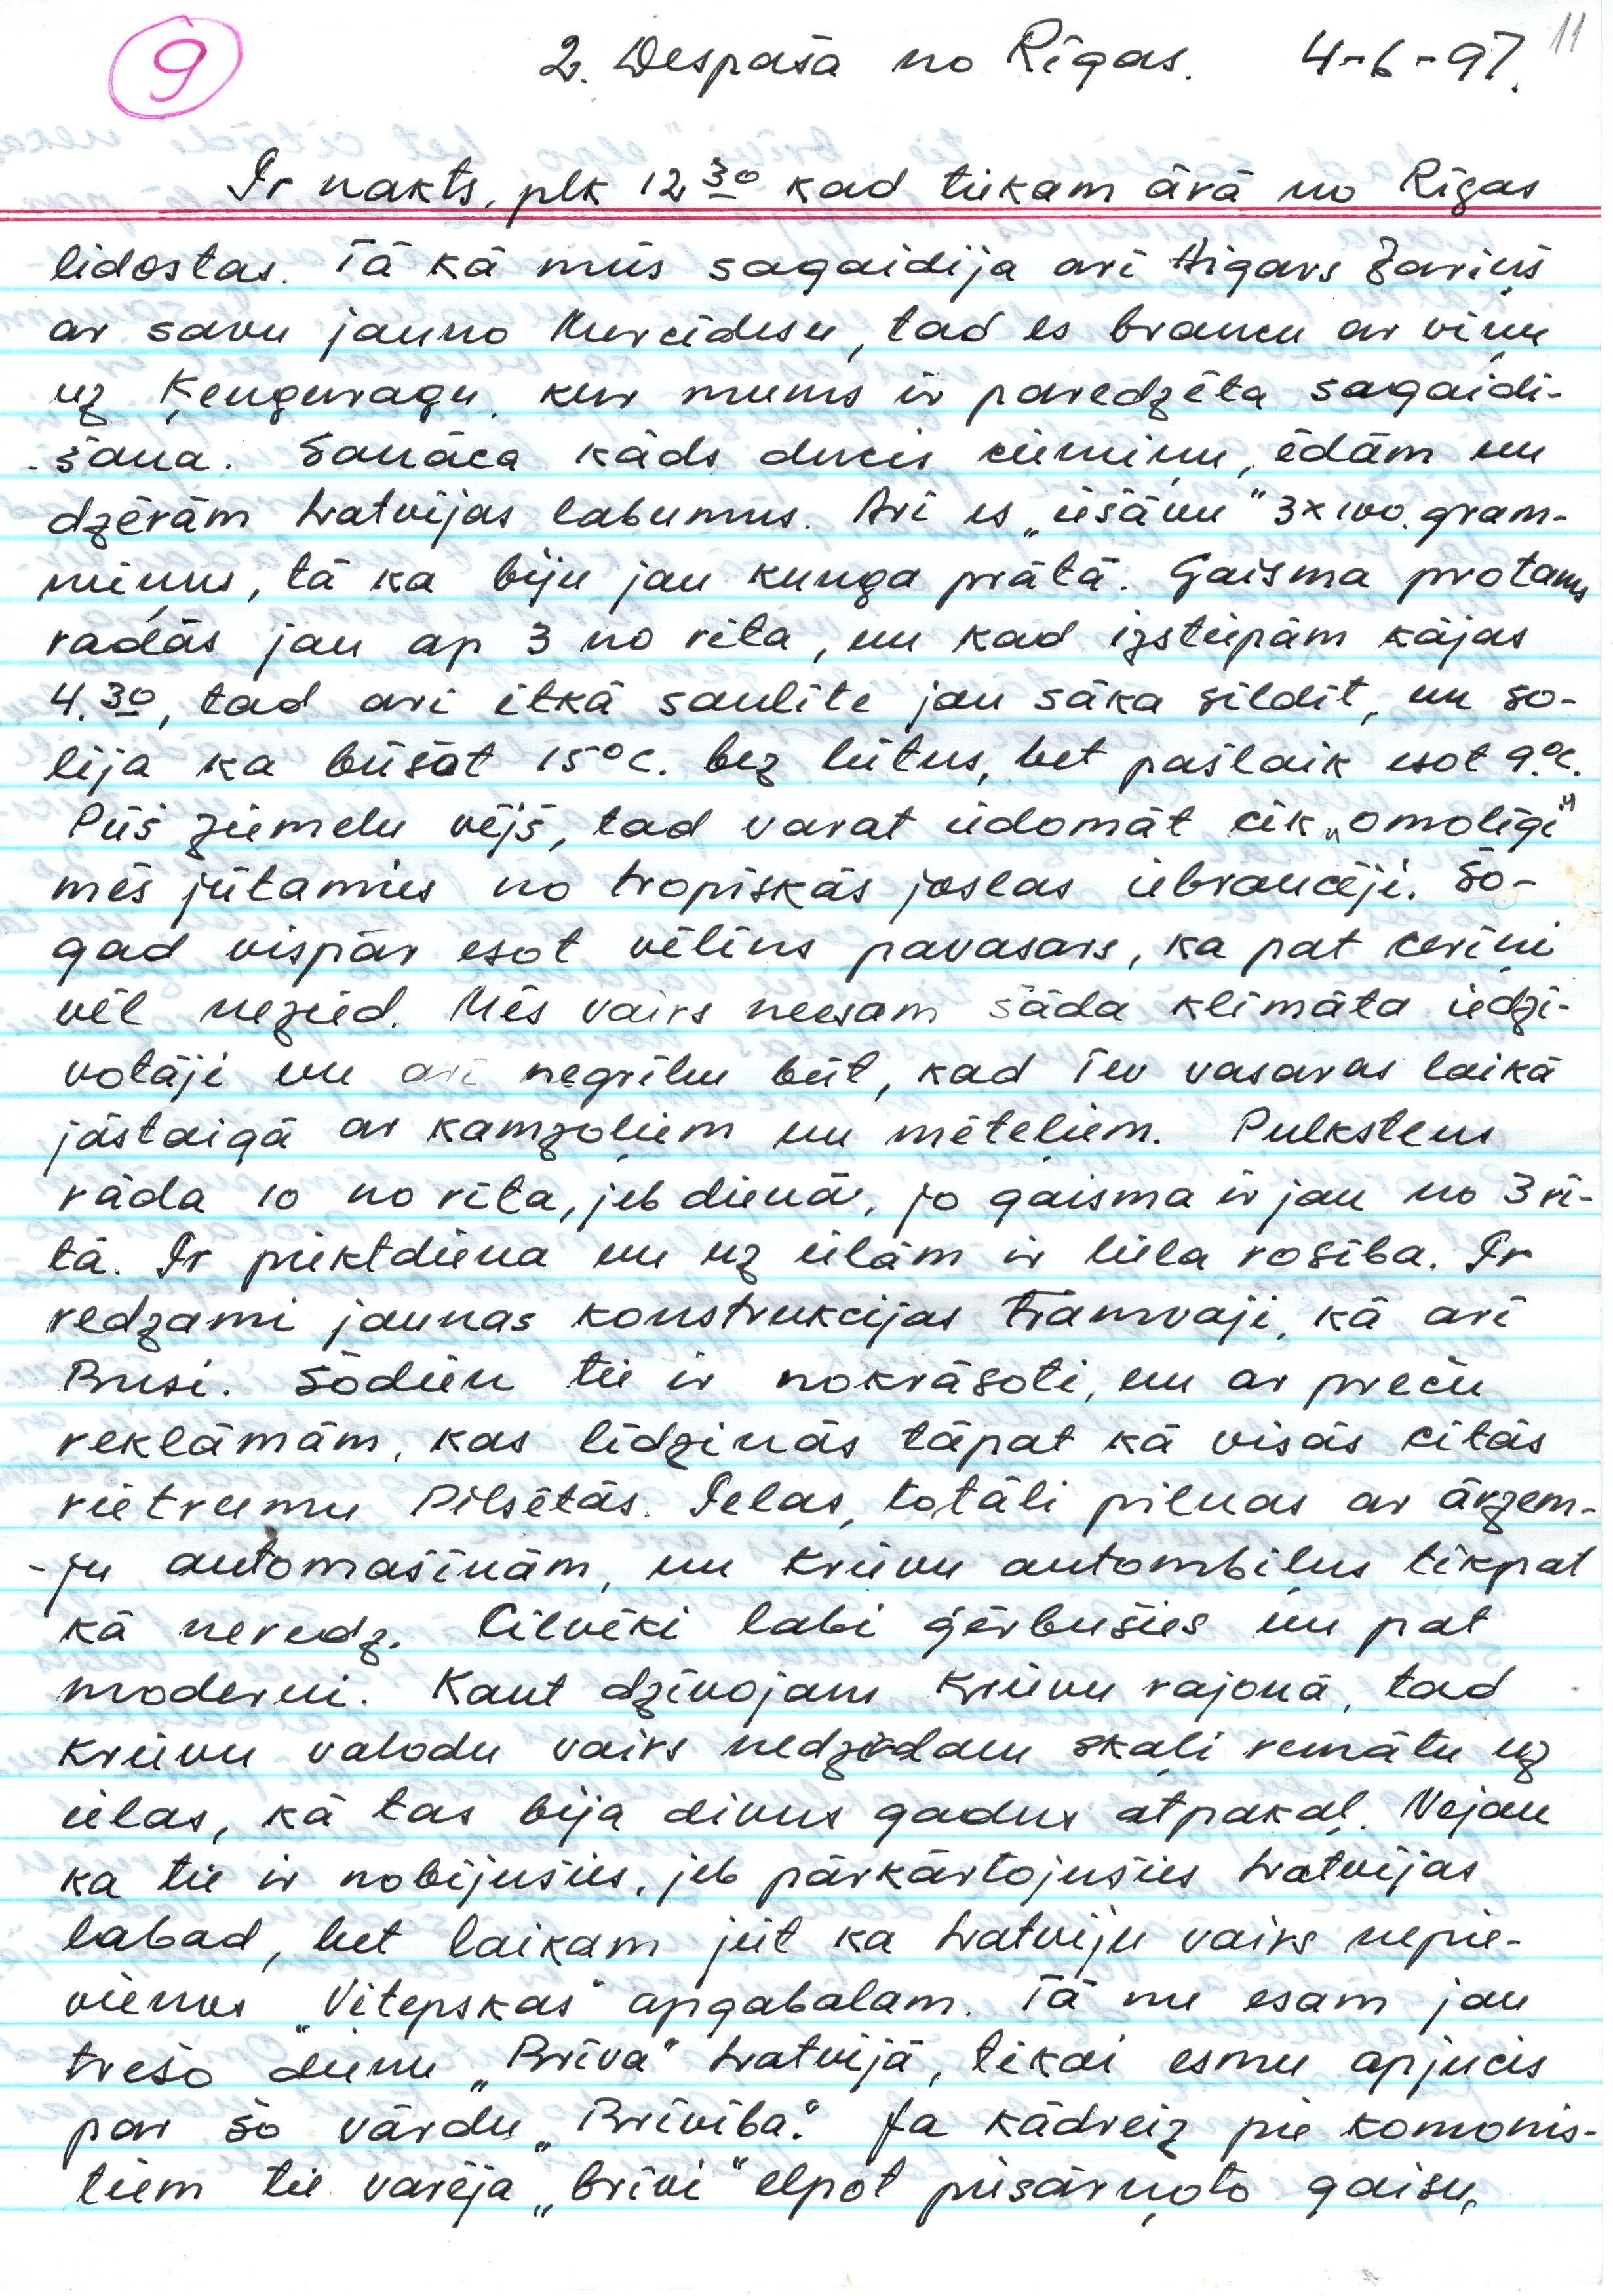 11
9
2. Despaša no Rīgas. 4-6-97.
Ir nakts, plk 12 30 kad tiekam ārā no Rīgas
lidostas. Tā kā mūs sagaidija arī Aigars Zariņš
ar savu jauno Mercidesu, tad es braucu ar viņu
uz Ķenguragu, kur mums ir paredzēta sagaidi-
-šana. Sanāca kāds ducis ciemiņu, ēdām un
dzērām Latvijas labumus. Arī es „iešāvu" 3x100. gram-
miņus, tā ka biju jau kunga prātā. Gaisma protams
radās jau ap 3 no rīta, un kad izstiepām kājas
4.30, tad arī itkā saulīte jau sāka sildīt, un so-
lija ka būšot 15°C. bez lietus, bet pašlaik esot 9°C.
Pūš ziemeļu vējš, tad varat iedomāt cik „omolīgi"
mēs jūtamies no tropiskās joslas iebraucēji. Šo-
gad vispār esot vēlīns pavasars, ka pat ceriņi
vēl nezied. Mēs vairs neesam šāda klimāta iedzi-
votāji un arī negribu būt, kad Tev vasaras laikā
jāstaigā ar kamzoļiem un mēteļiem. Pulkstens
rāda 10 no rīta, jeb dienā, jo gaisma ir jau no 3 rī-
tā. Ir piektdiena un uz ielām ir liela rosība. Ir
redzami jaunas konstrukcijas tramvaji, kā arī
Busi. Šodien tie ir nokrāsoti, un ar preču
reklāmām, kas līdzinās tāpat kā visās citās
rietrumu Pilsētās. Ielas, totāli pilnas ar ārzem-
-ju automašīnām, un krievu autombiļus tikpat
kā neredz. Cilvēki labi ģērbušies un pat
moderni. Kaut dzīvojam Krievu rajonā, tad
krievu valodu vairs nedzirdam skaļi runātu uz
ielas, kā tas bija divus gadus atpakaļ. Nejau
ka tie ir nobijušies, jeb pārkārtojušies Latvijas
labad, bet laikam jūt ka Latviju vairs nepie-
vienos „Vitepskas" apgabalam. Tā nu esam jau
trešo dienu „Brīvā" Latvijā, tikai esmu apjucis
par šo vārdu „Brīvība". Ja kādreiz pie komonis-
tiem tie varēja „brīvi" elpot piesārņoto gaisu,